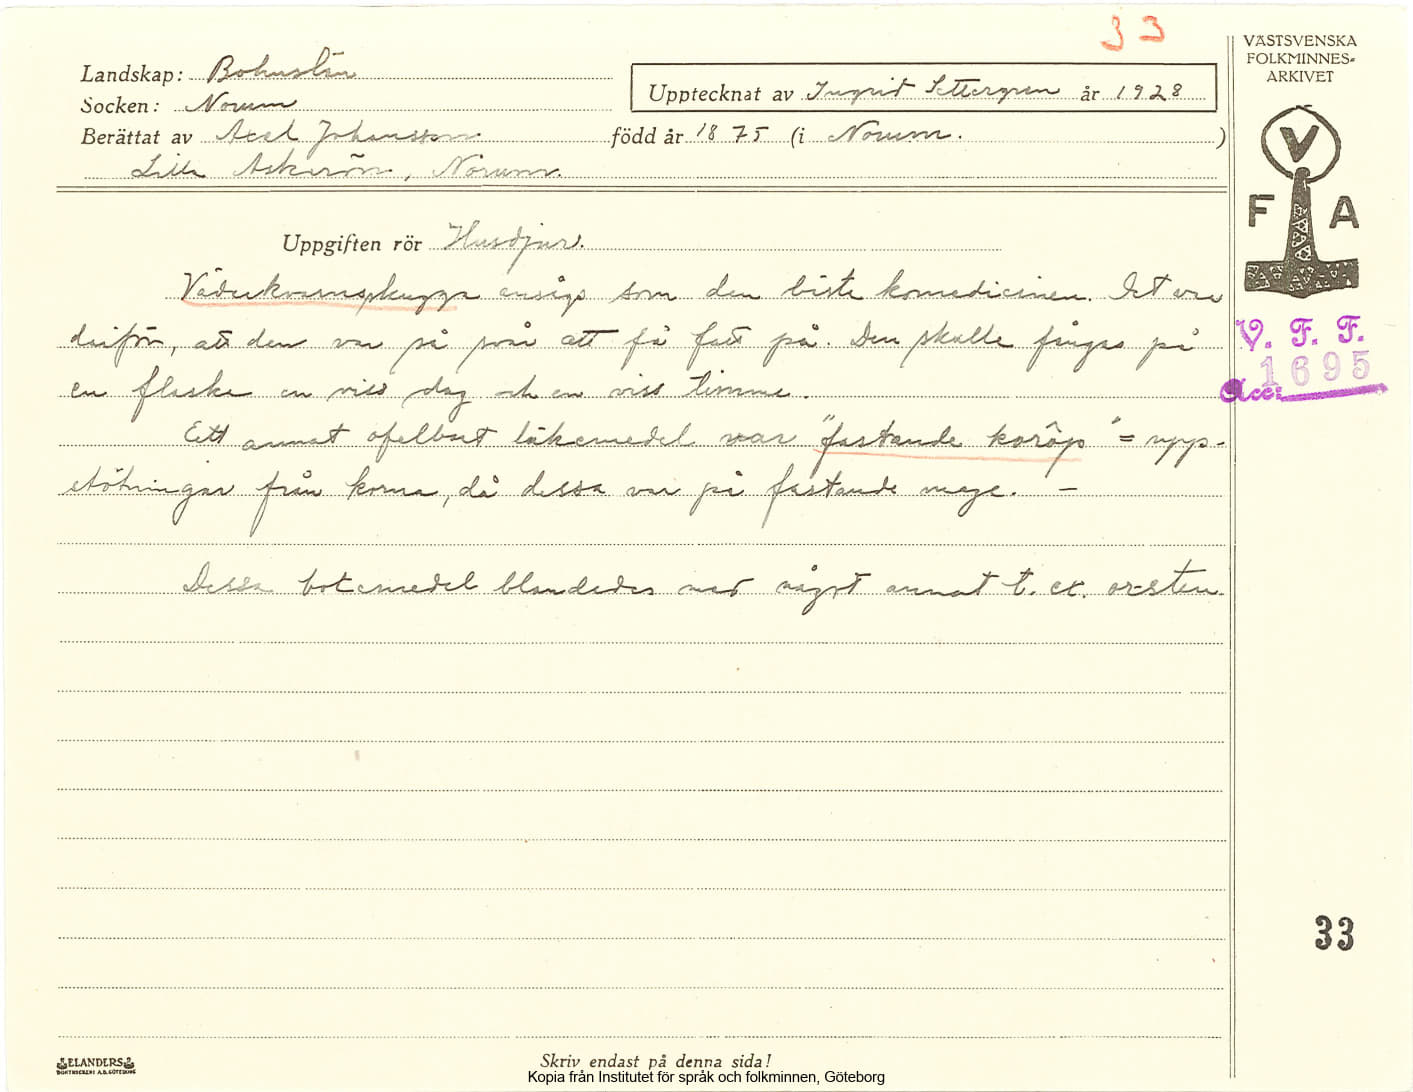 33
VÄSTSVENSKA
FOLKMINNES-
ARKIVET
Landskap: Bohuslän
Socken: Norum
Upptecknat av Ingrid Settergren år 1928
Berättat av Axel Johansson född år 1875 (i Norum.)
Lilla Askerön, Norum.
V
F A
Uppgiften rör Husdjur.
Väderkvarnsskugga ansågs som den bästa komedicinen. Det var
därför, att den var så svår att få fatt på. Den skulle fångas på
en flaska en viss dag och en viss timme.
V. F. F.
Acc: 1695
Ett annat ofelbart läkemedel var "fastande koröps" = upp-
stötningar från korna, då dessa var på fastande mage. –
Dessa botemedel blandades med något annat t. ex. orsten.
33
ELANDERS
BOKTRYCKERI A.B. GÖTEBORG
Skriv endast på denna sida!
Kopia från Institutet för språk och folkminnen, Göteborg